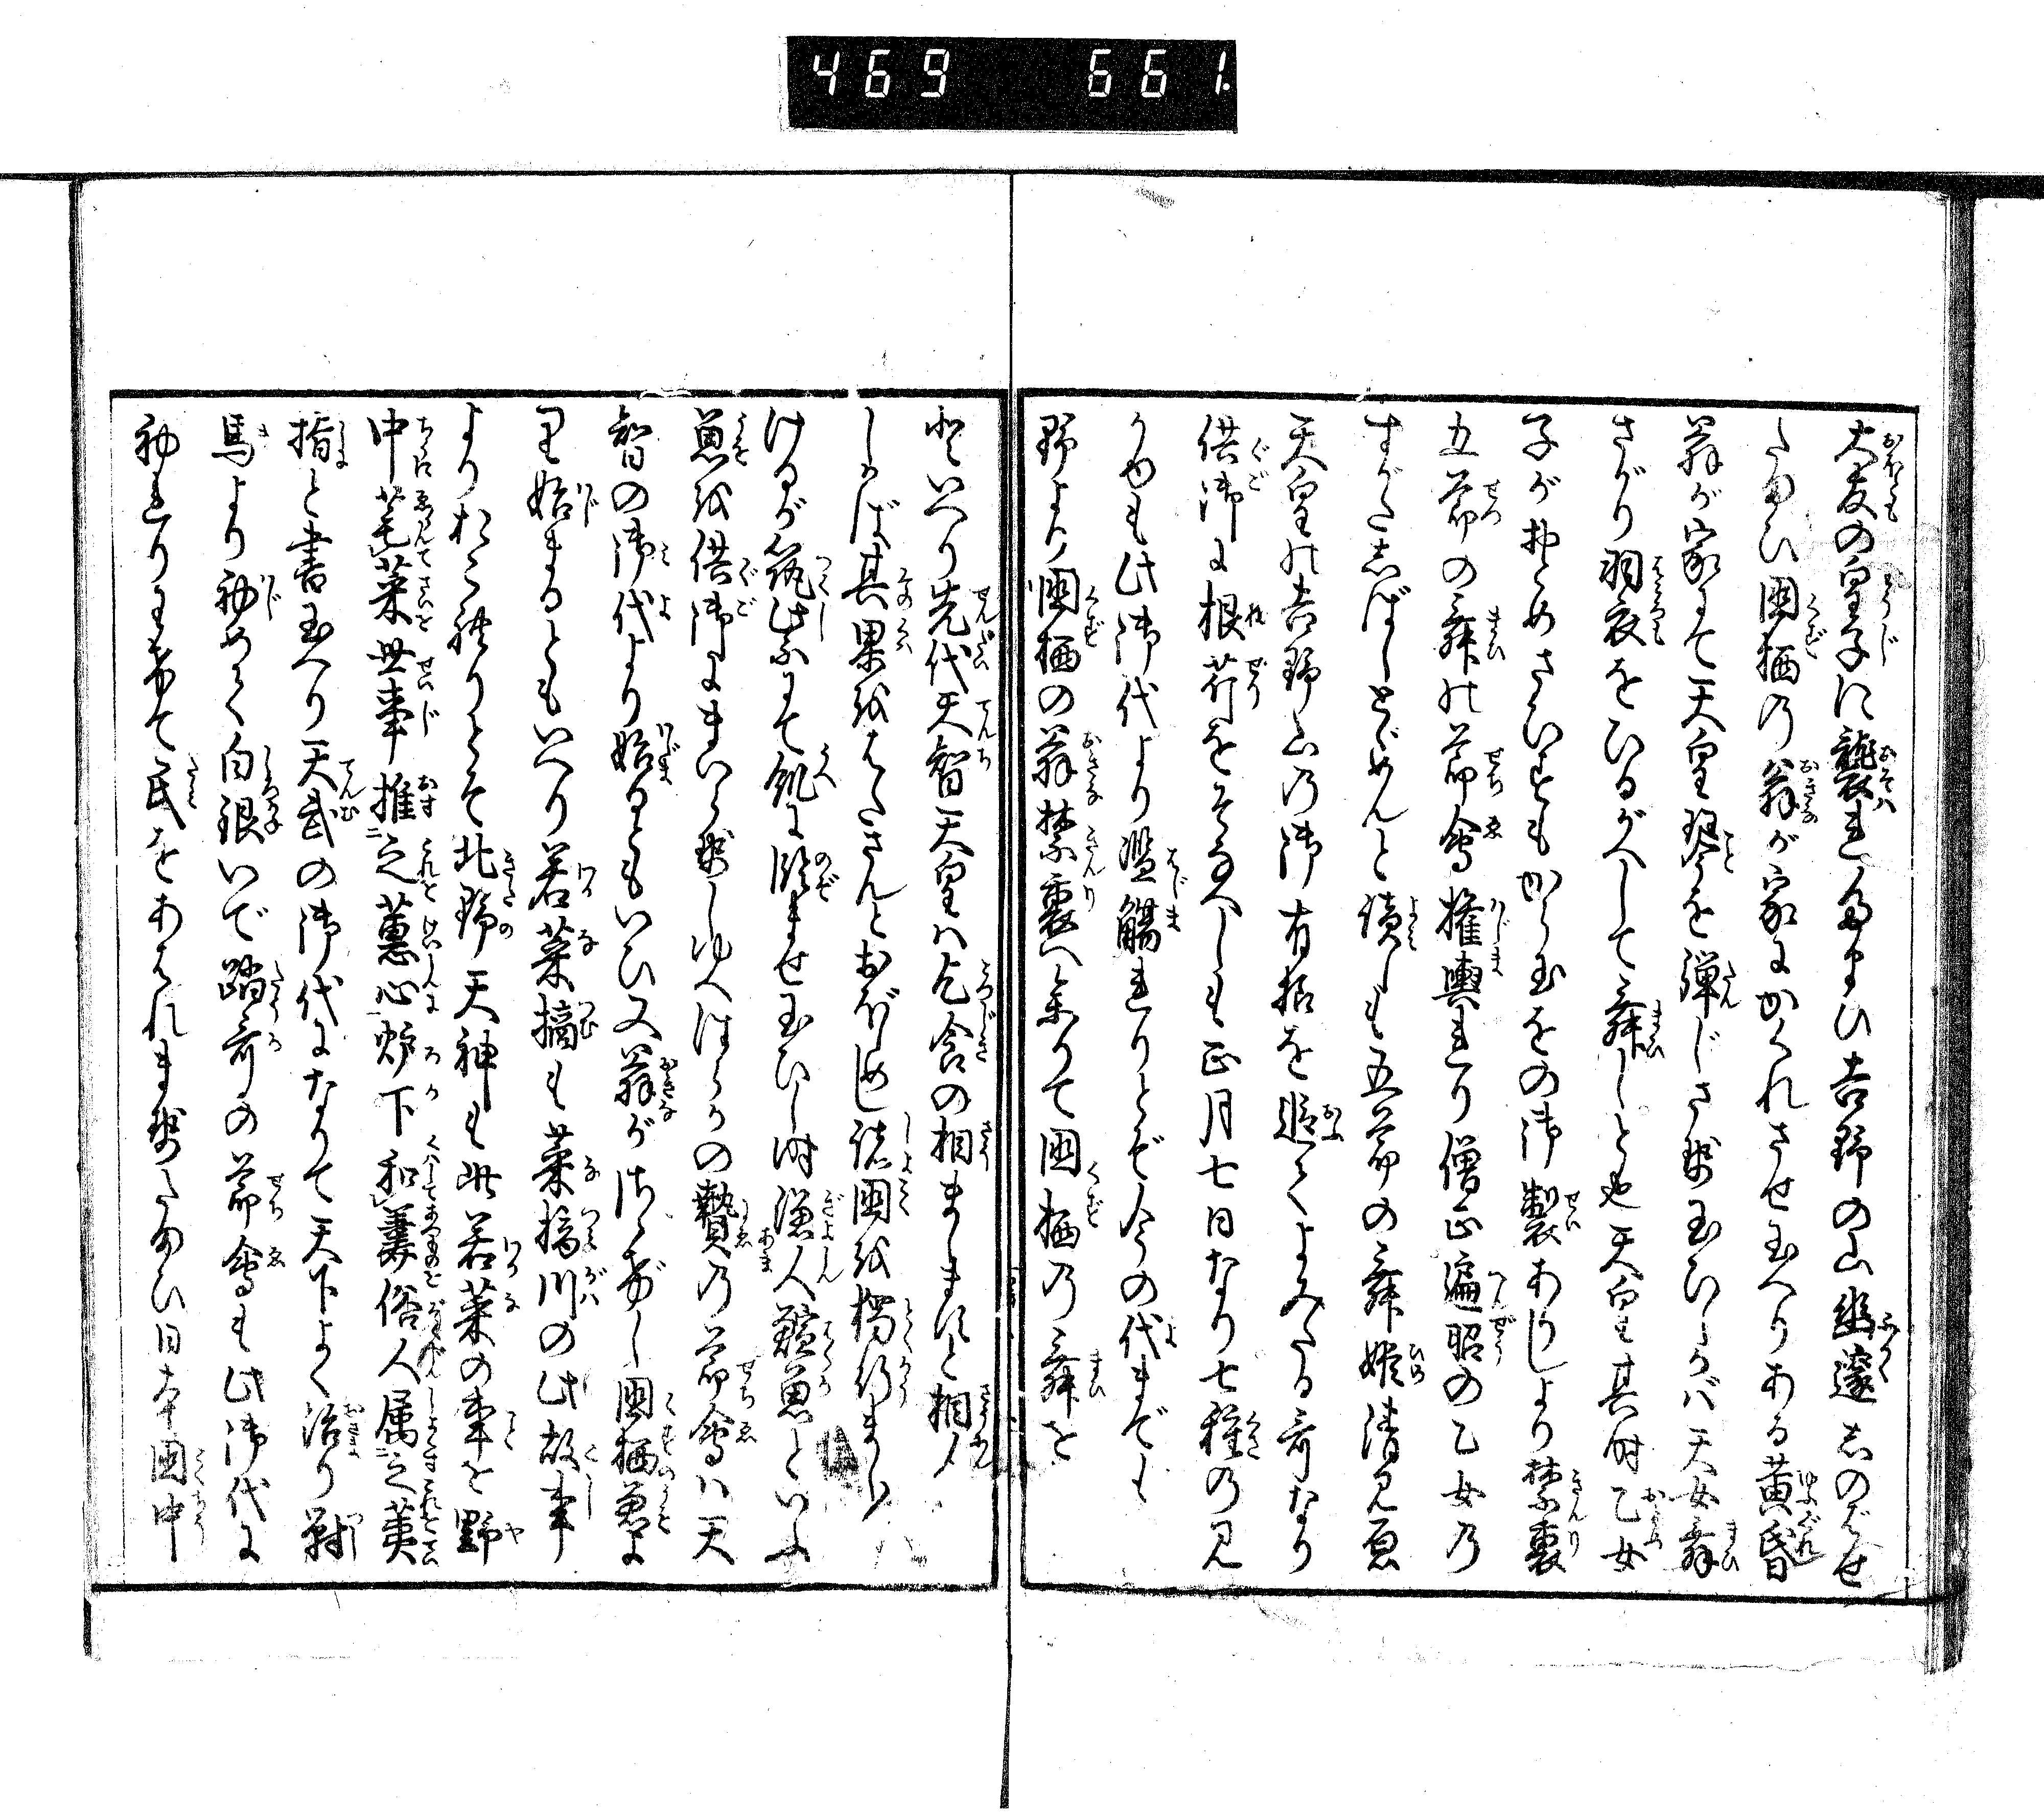 469 661.
大友の皇子に襲れたまひ吉野の山幽邃しのばせ
たまひ国栖乃翁が家にかくれさせ玉へりある黄昏
翁が家にて天皇琴を弾じさせ玉ひしかバ天女舞
さがり羽衣をひるがへして舞しと也天皇其時乙女
子がおとめさひすもから玉をの御製ありしより禁裏
五節の舞の節会権輿れり僧正遍昭の乙女乃
すがたしばしとゞめんと読しも五節の舞姫清見原
天皇の吉野山乃御有様を追てよみたる哥なり
供御に根芹をそなへしも正月七日なり七種の
ためも此御代より濫觴れりとぞ今の代までも
野より国栖の翁禁裏へ来りて国栖乃舞を
といへり先代天智天皇ハ乞食の相まします相人
しかば其果をはたさんとおぼしめし諸国を独行まし
けるが筑紫にて飢に臨ませ玉ひし時漁人鰚魚といふ
魚を供御にまいらせしゆへはらかの贄乃節会ハ天
智の御代より始るともいひ又翁がさゝげし国栖魚よ
り始まるともいへり若菜摘も菜摘川の此故事
よりおこれりとそ北野天神も此若菜の事を野
中芼菜世事推之蕙心炉下和羹俗人属之荑
指と書玉へり天武の御代になりて天下よく治り對
馬より初めて白銀いで踏哥の節会も此御代に
初れりまして民をあはれませたまひ日本国中